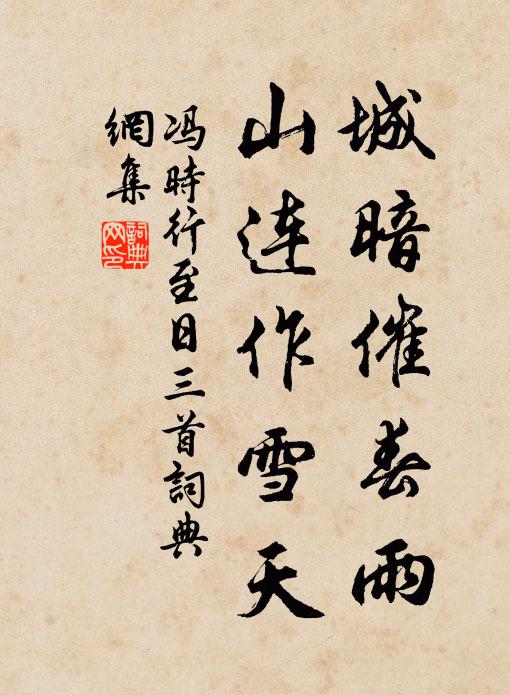 城暗催春雨
山連作雪天
冯時行至日三首詞典
網集
詞典
网印